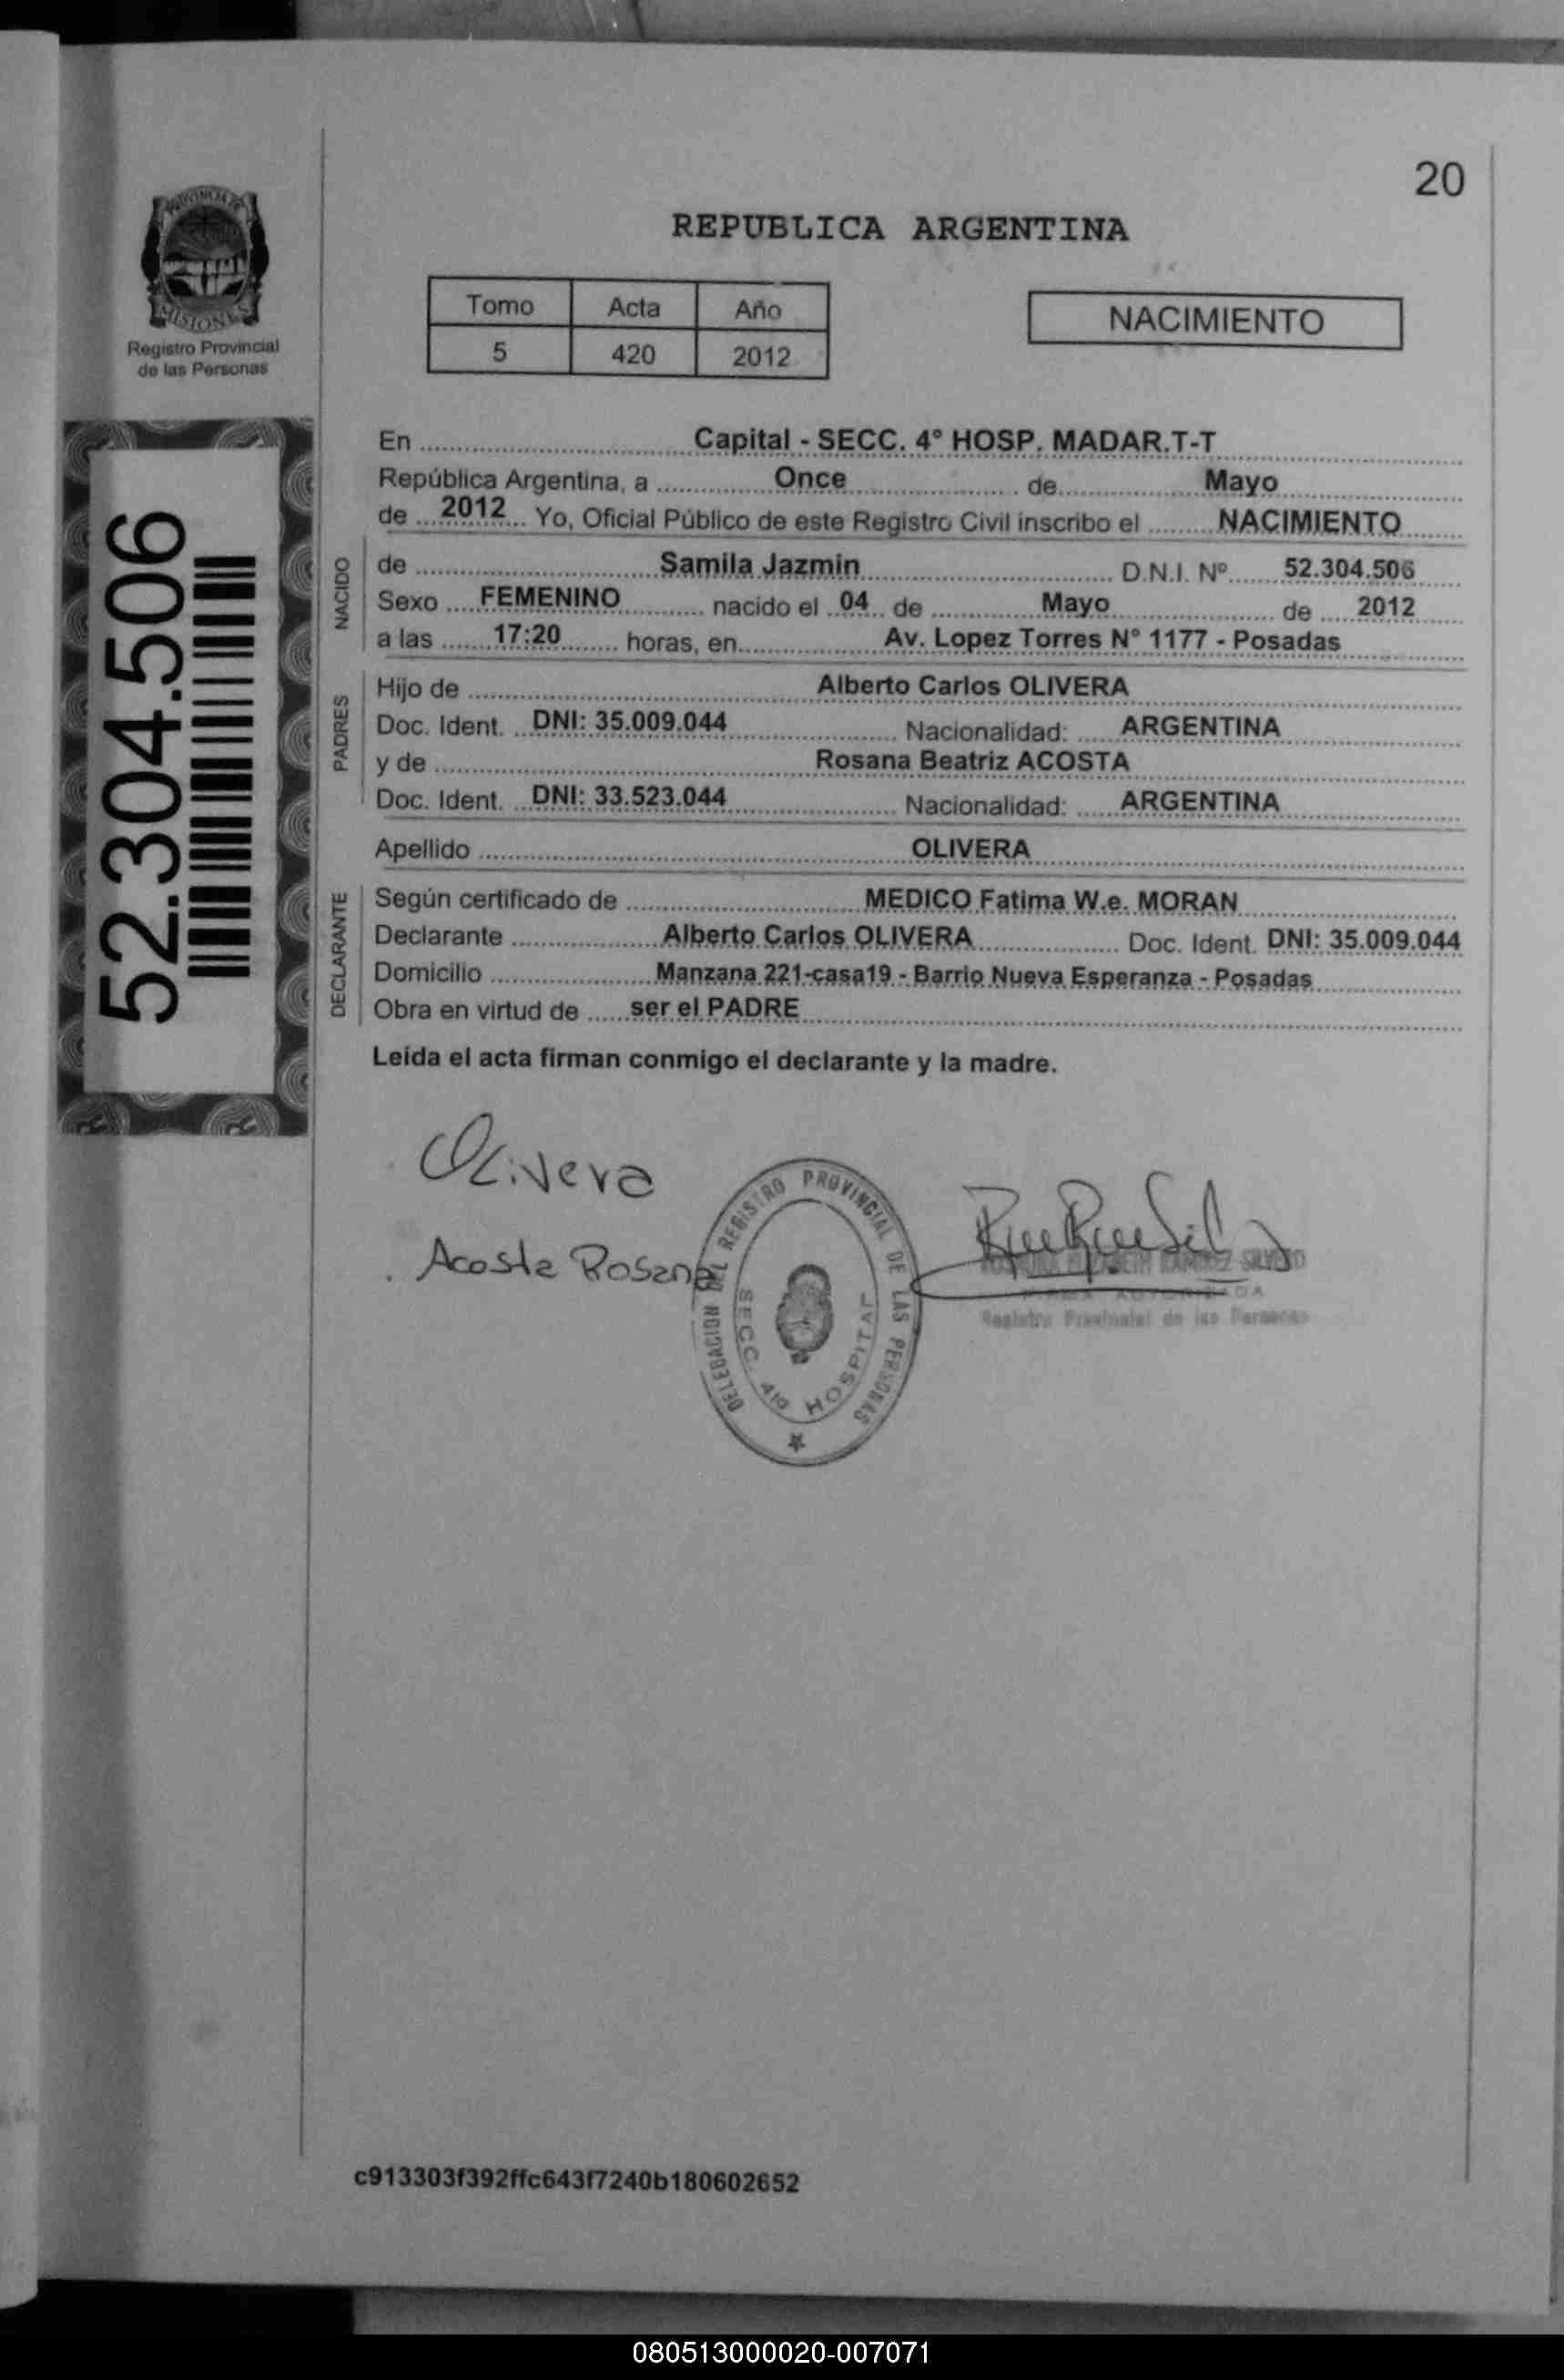 20
PROVINCIA DE
MISIONES
Registro Provincial
de las Personas
REPUBLICA ARGENTINA
Tomo Acta Año
5 420 2012
NACIMIENTO
52.304.506
En Capital - SECC. 4° HOSP. MADAR.T-T
República Argentina, a Once de Mayo
de 2012 Yo, Oficial Público de este Registro Civil inscribo el NACIMIENTO
NACIDO
de Samila Jazmin D.N.I. Nº 52.304.506
Sexo FEMENINO nacido el 04 de Mayo de 2012
a las 17:20 horas, en Av. Lopez Torres N° 1177 - Posadas
PADRES
Hijo de Alberto Carlos OLIVERA
Doc. Ident. DNI: 35.009.044 Nacionalidad: ARGENTINA
y de Rosana Beatriz ACOSTA
Doc. Ident. DNI: 33.523.044 Nacionalidad: ARGENTINA
Apellido OLIVERA
DECLARANTE
Según certificado de MEDICO Fatima W.e. MORAN
Declarante Alberto Carlos OLIVERA Doc. Ident. DNI: 35.009.044
Domicilio Manzana 221-casa19 - Barrio Nueva Esperanza - Posadas
Obra en virtud de ser el PADRE
Leida el acta firman conmigo el declarante y la madre.
Olivera
Acosta Rosana
DELEGACION DEL REGISTRO PROVINCIAL DE LAS PERSONAS
SECC. 4ta HOSPITAL
ELIZABETH RAMIREZ SILVERO
FIRMA AUTORIZADA
Registro Provincial de las Personas
c913303f392ffc643f7240b180602652
080513000020-007071